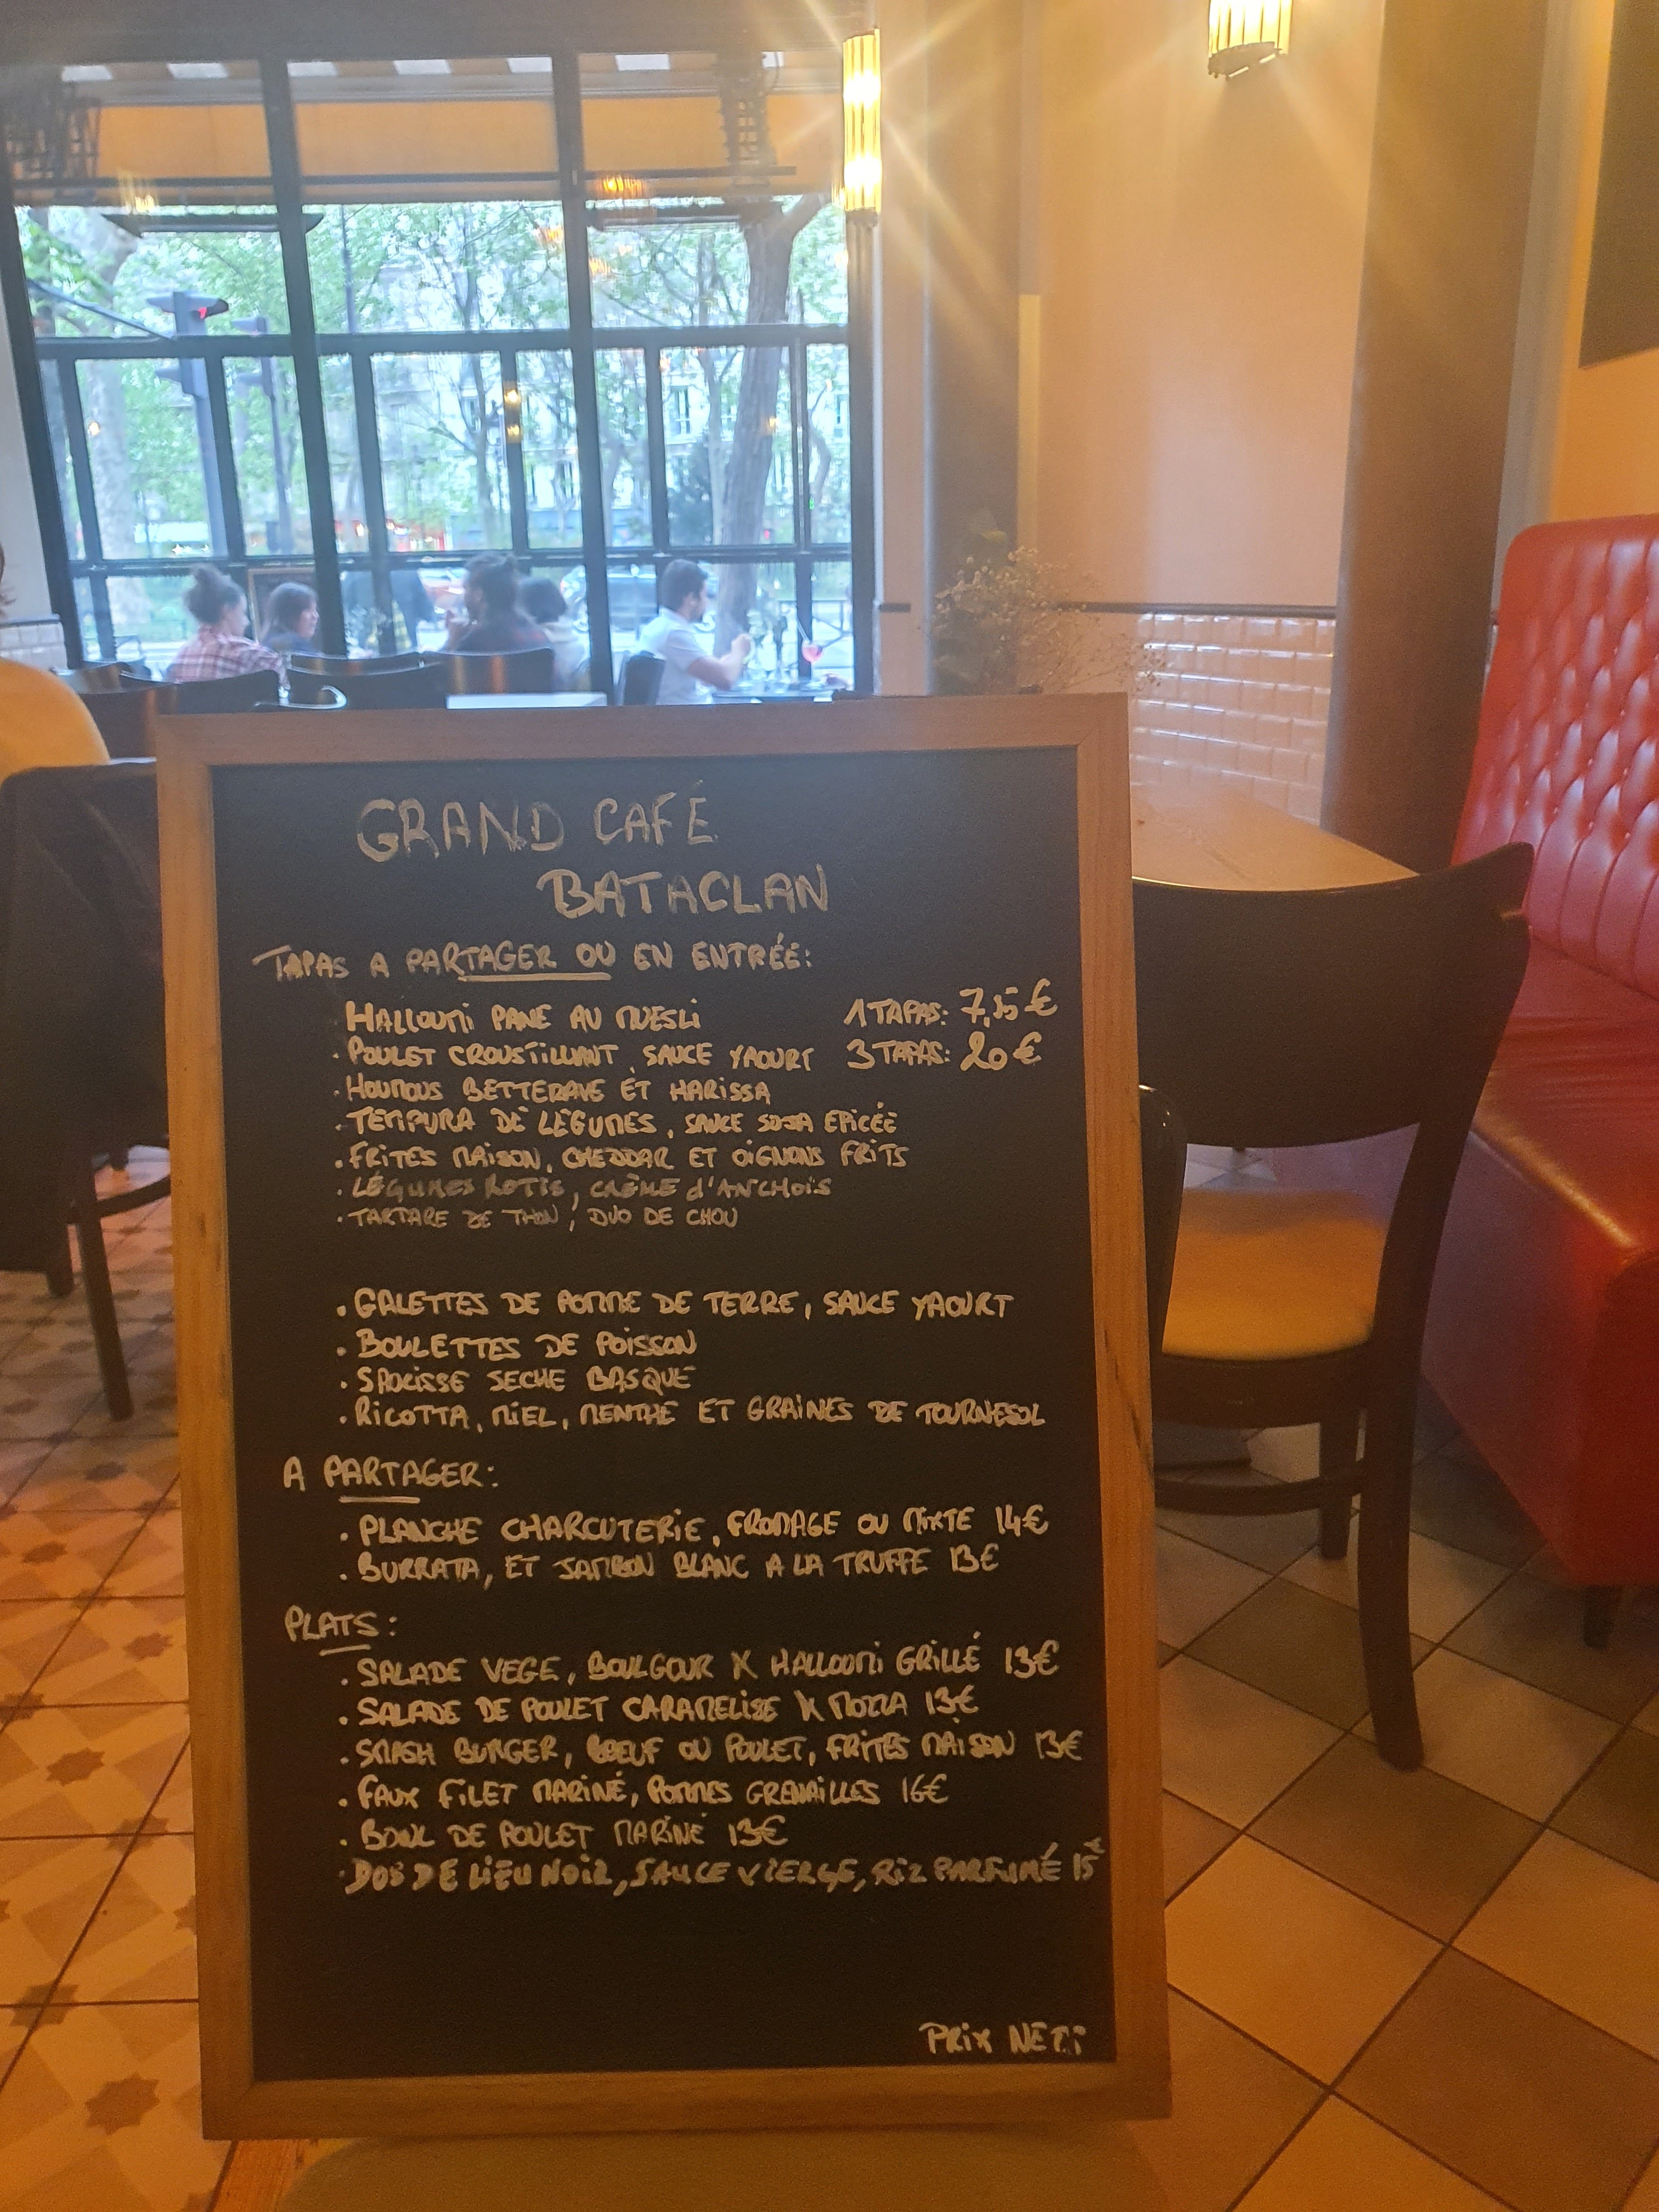 GRAND CAFÉ
BATACLAN
TAPAS A PARTAGER OU EN ENTRÉE:
HALLOUMI PANE AU MUESLI 1 TAPAS: 7,55€
· POULET CROUSTILLANT, SAUCE YAOURT 3 TAPAS: 20€
· HOUMOUS BETTERAVE ET HARISSA
· TEMPURA DE LÉGUMES, SAUCE SOJA EPICÉE
· FRITES MAISON, CHEDDAR ET OIGNONS FRITS
· LÉGUMES ROTIS, CRÈME d'ANCHOIS
· TARTARE DE THON, DUO DE CHOU
· GALETTES DE POMME DE TERRE, SAUCE YAOURT
· BOULETTES DE POISSON
· SAUCISSE SECHE BASQUE
· RICOTTA, MIEL, MENTHE ET GRAINES DE TOURNESOL
A PARTAGER:
· PLANCHE CHARCUTERIE, FROMAGE OU MIXTE 14€
· BURRATA, ET JAMBON BLANC A LA TRUFFE 13€
PLATS:
· SALADE VEGE, BOULGOUR X HALLOUMI GRILLÉ 13€
· SALADE DE POULET CARAMELISE X MOZZA 13€
· SMASH BURGER, BOEUF OU POULET, FRITES MAISON 13€
· FAUX FILET MARINÉ, POMMES GRENAILLES 16€
· BOWL DE POULET MARINÉ 13€
· DOS DE LIEU NOIR, SAUCE VIERGE, RIZ PARFUMÉ 15€
PRIX NET